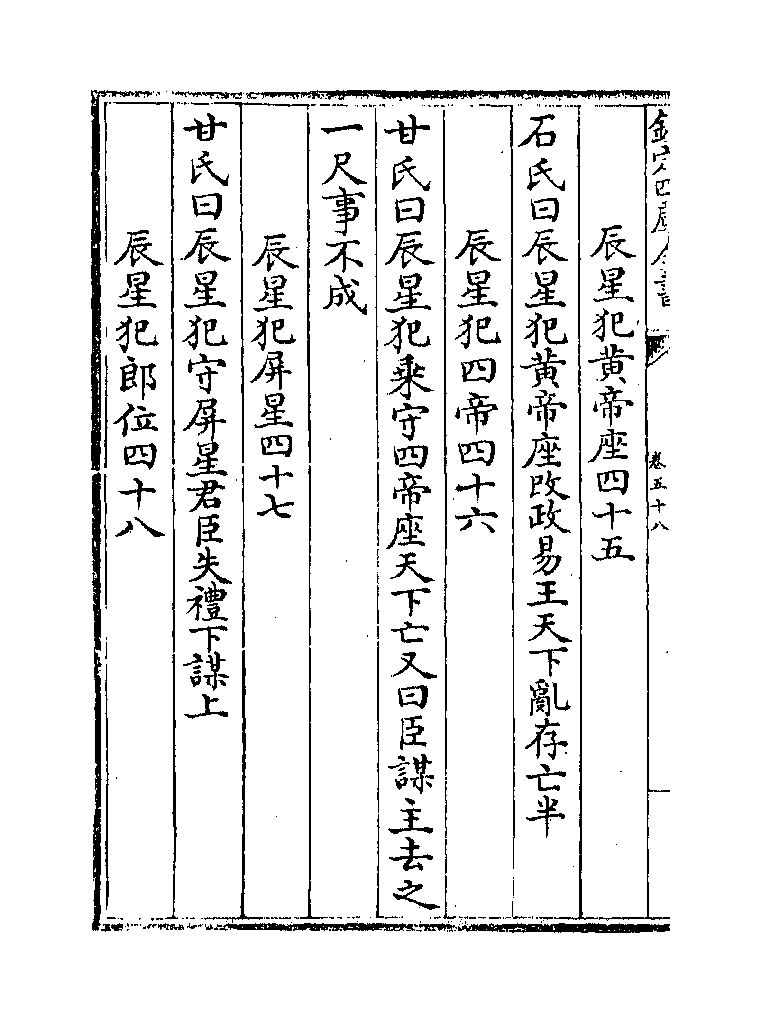 欽定四庫全書
卷五十八
辰星犯黄帝座四十五
石氏曰辰星犯黄帝座改政易王天下亂存亡半
辰星犯四帝四十六
甘氏曰辰星犯乘守四帝座天下亡又曰臣謀主去之
一尺事不成
辰星犯屏星四十七
甘氏曰辰星犯守屏星君臣失禮下謀上
辰星犯郎位四十八